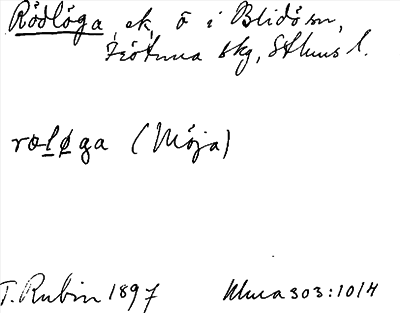 Rödlöga, ek, ö i Blidö sn,
Frötuna skg, Sthms l.
rœløga (Möja)
T. Rubin 1897 Uluca 303:10/4